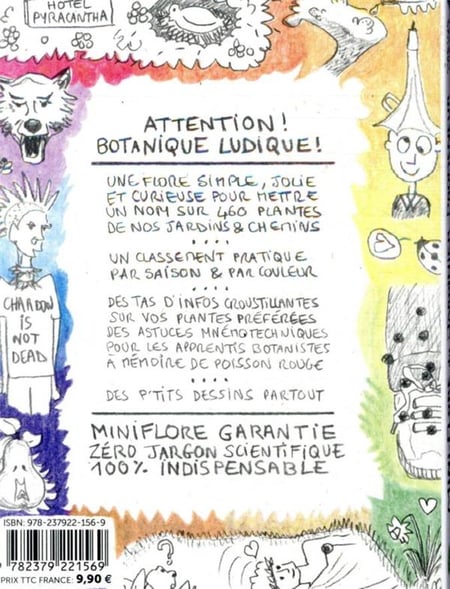 HOTEL
PYRACANTHA
ATTENTION!
BOTANIQUE LUDIQUE!
UNE FLORE SIMPLE, JOLIE
ET CURIEUSE POUR METTRE
UN NOM SUR 460 PLANTES
DE NOS JARDINS & CHEMINS
....
UN CLASSEMENT PRATIQUE
PAR SAISON & PAR COULEUR
....
DES TAS D'INFOS CROUSTILLANTES
SUR VOS PLANTES PRÉFÉRÉES
DES ASTUCES MNÉMOTECHNIQUES
POUR LES APPRENTIS BOTANISTES
À MÉMOIRE DE POISSON ROUGE
....
DES P'TITS DESSINS PARTOUT
MINIFLORE GARANTIE
ZÉRO JARGON SCIENTIFIQUE
100% INDISPENSABLE
CHARDON
IS
NOT
DEAD
ISBN: 978-237922-156-9
782379 221569
PRIX TTC FRANCE: 9,90 €
?